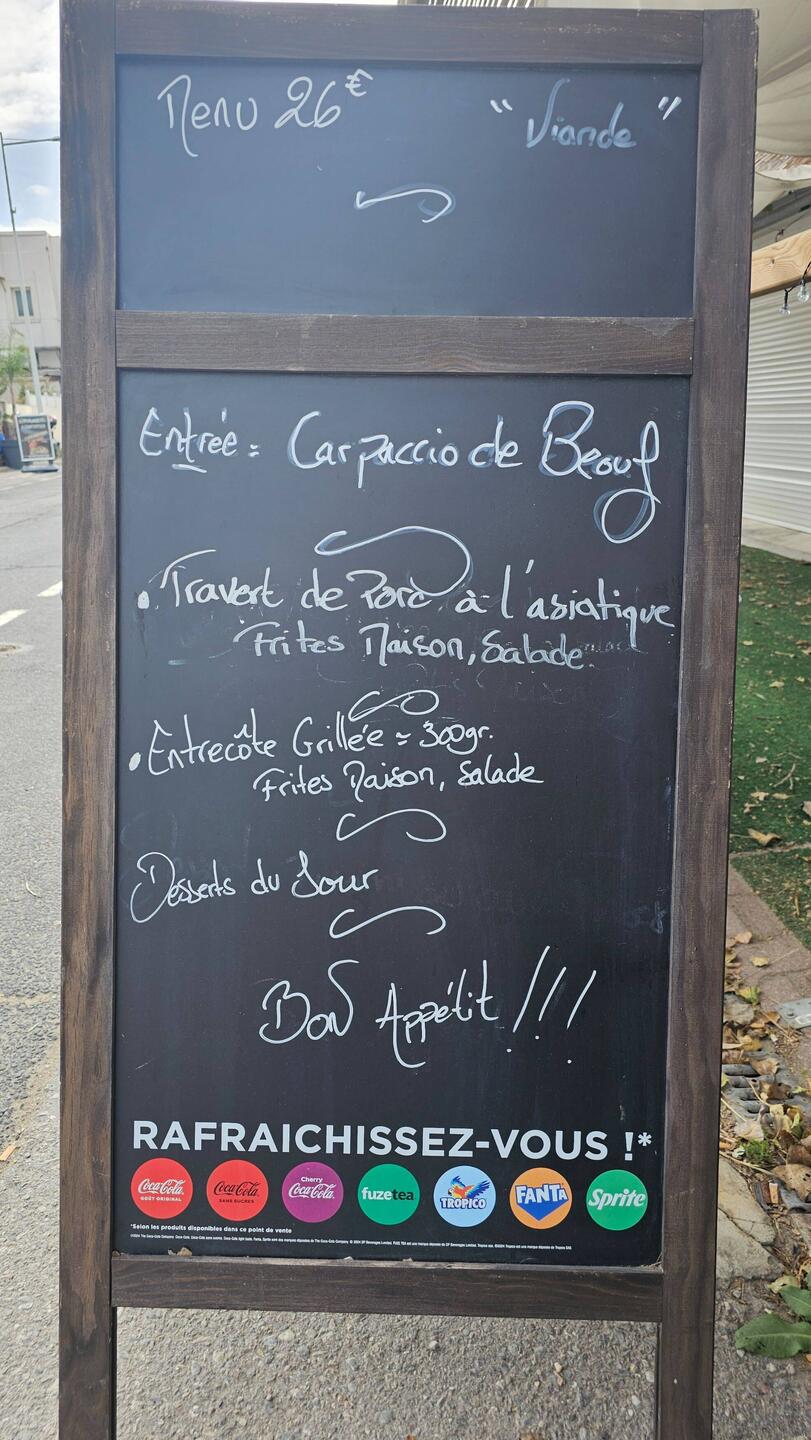 Menu 26€ "Viande"
Entrée = Carpaccio de Beouf
• Travert de Porc à l'asiatique
Frites Maison, Salade
• Entrecôte Grillée = 300gr.
Frites Maison, Salade
Desserts du Jour
Bon Appétit !!!
RAFRAICHISSEZ-VOUS !*
Coca-Cola GOÛT ORIGINAL
Coca-Cola SANS SUCRES
Cherry Coca-Cola
fuzetea
TROPICO
FANTA
Sprite
*Selon les produits disponibles dans ce point de vente